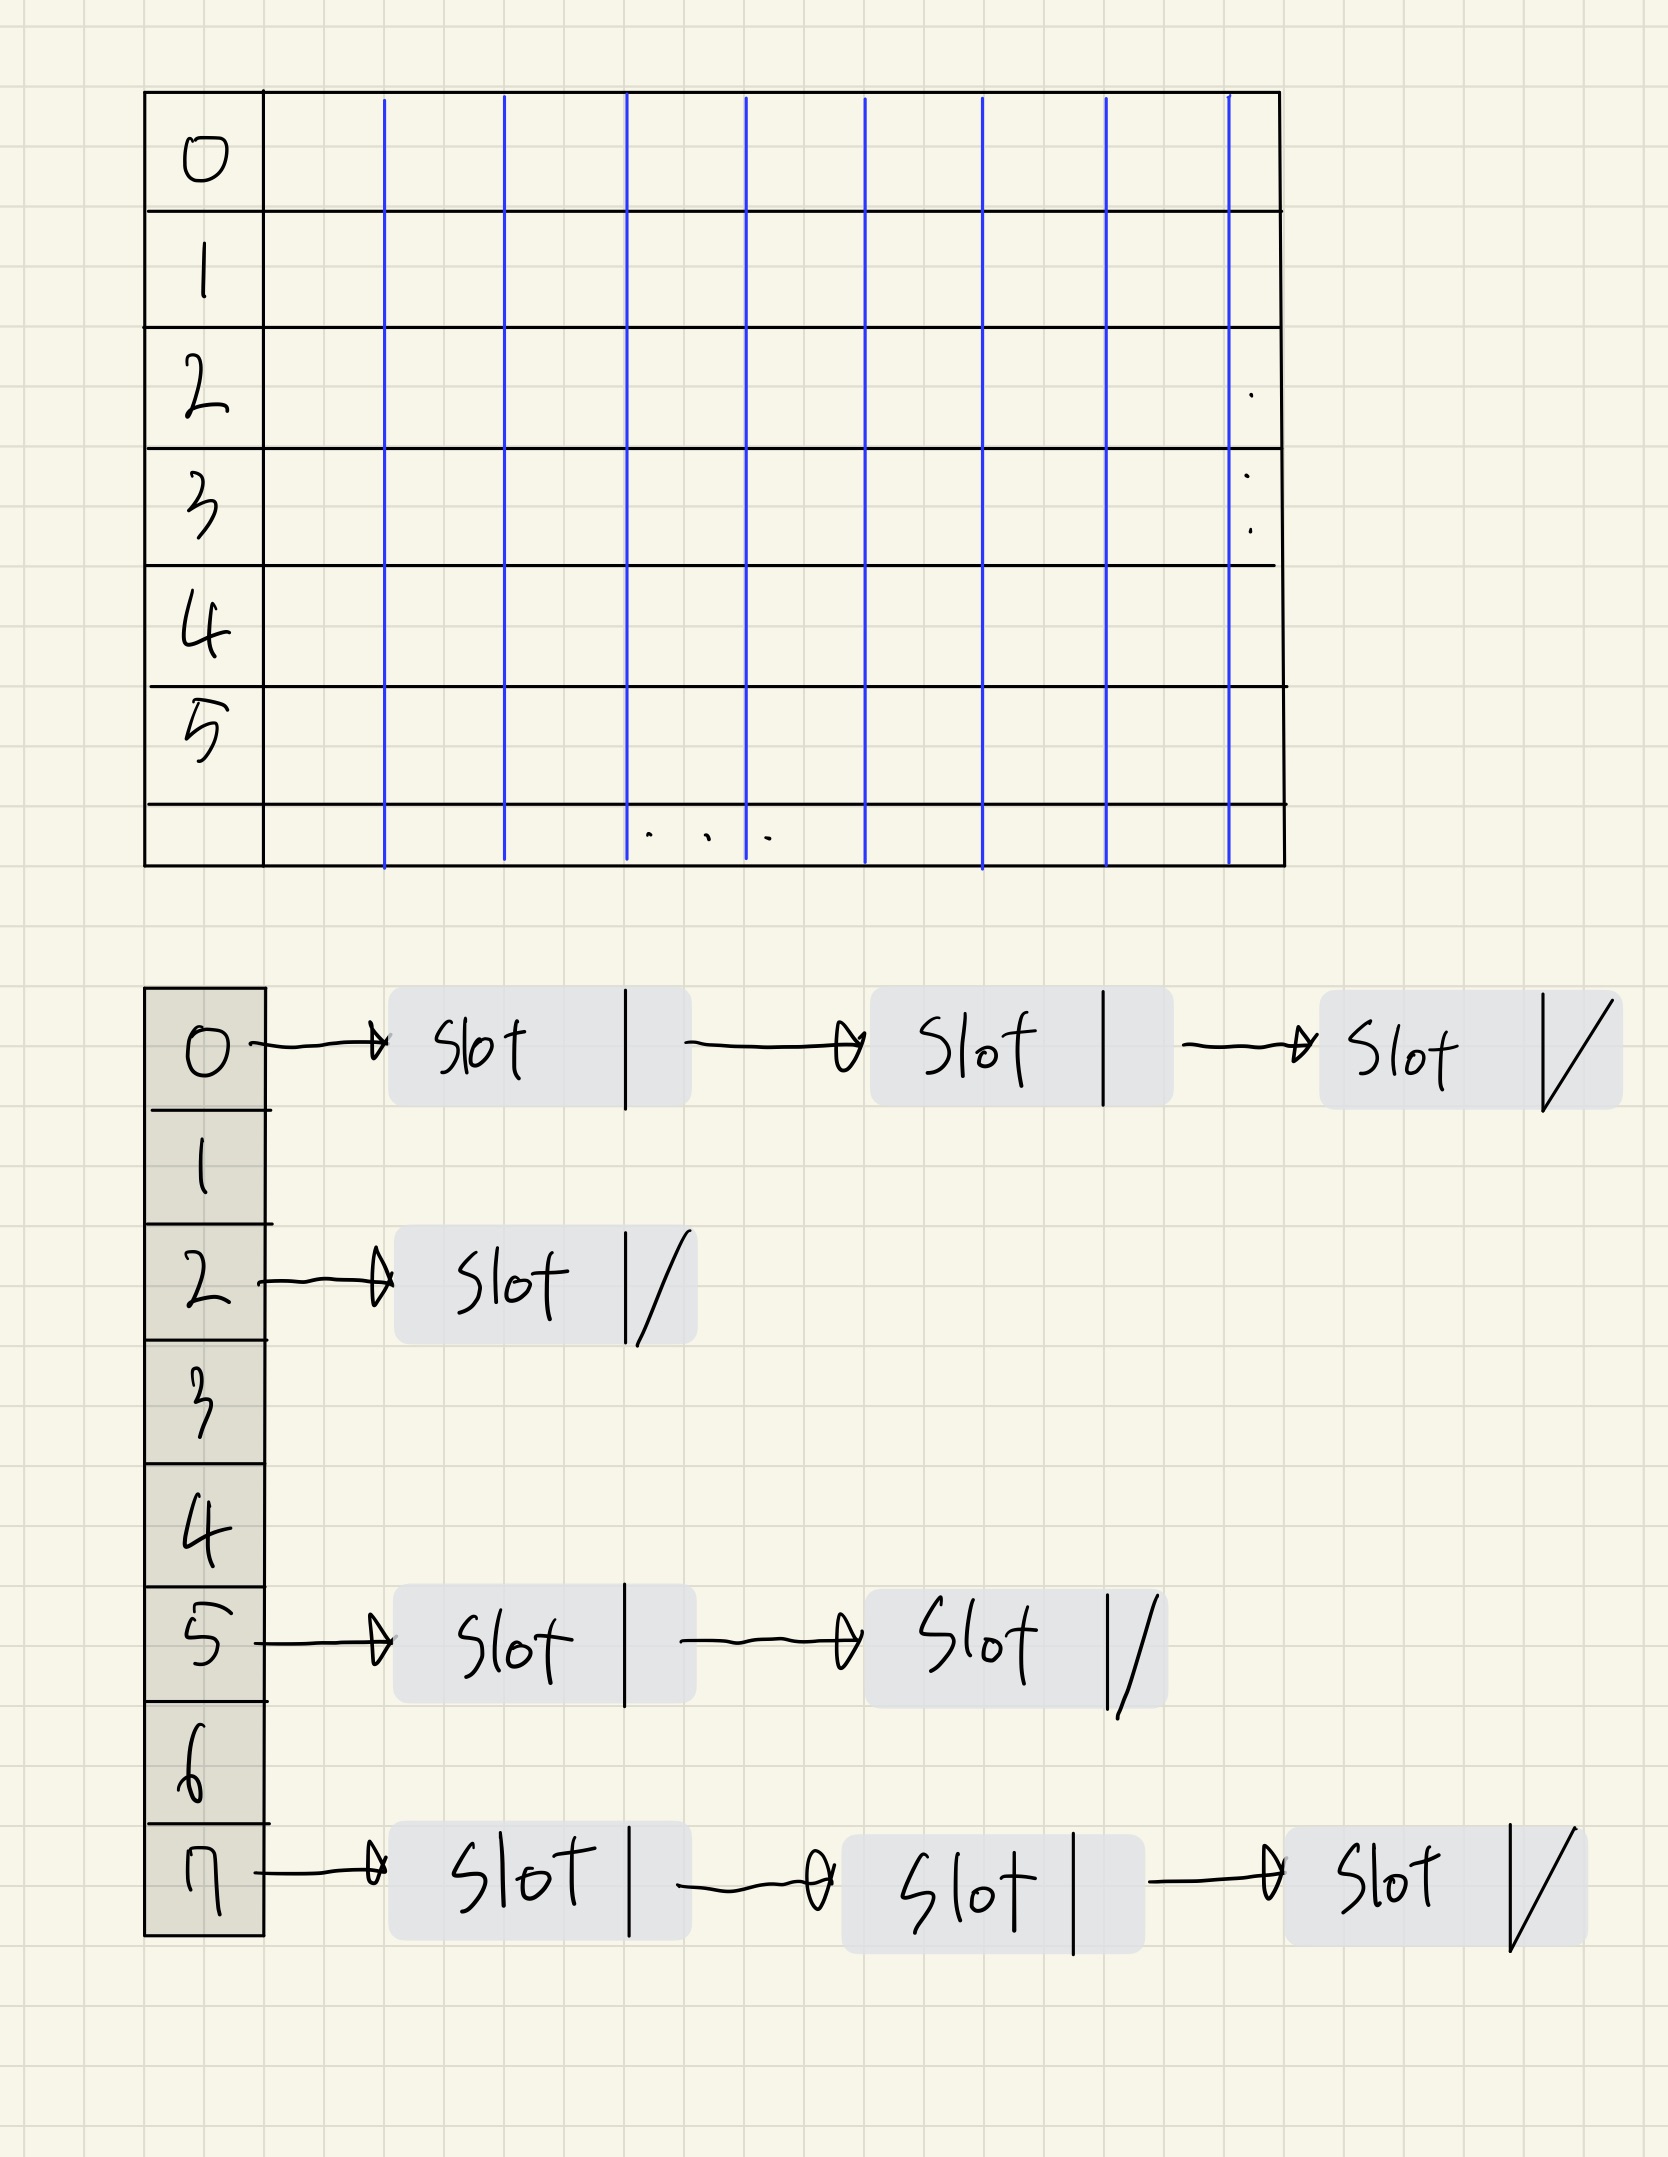 0
1
2
3
4
5
. . .
0 Slot Slot Slot
1
2 Slot
3
4
5 Slot Slot
6
7 Slot Slot Slot